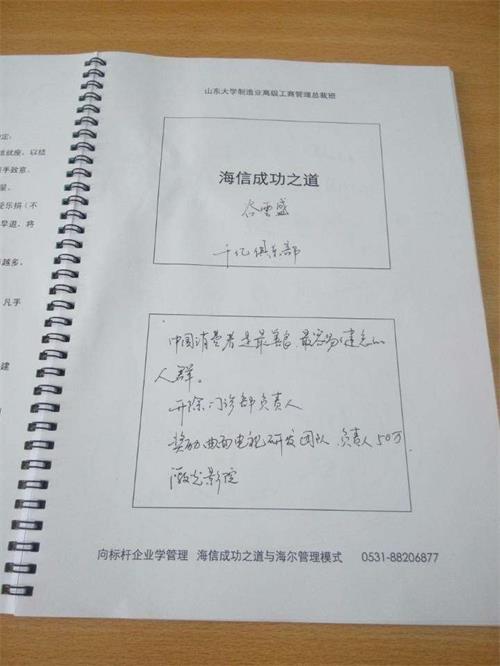 定.
班就座，以结
手致意.
星.
受乐捐（不
早退，将
越多。
凡手
建
山东大学制造业高级工商管理总裁班
海信成功之道
谷云盛
千亿俱乐部
中国消费者是最善良、最容易健忘的
人群。
开除门诊部负责人
奖励曲面电视研发团队 负责人50万.
激光影院
向标杆企业学管理 海信成功之道与海尔管理模式 0531-88206877